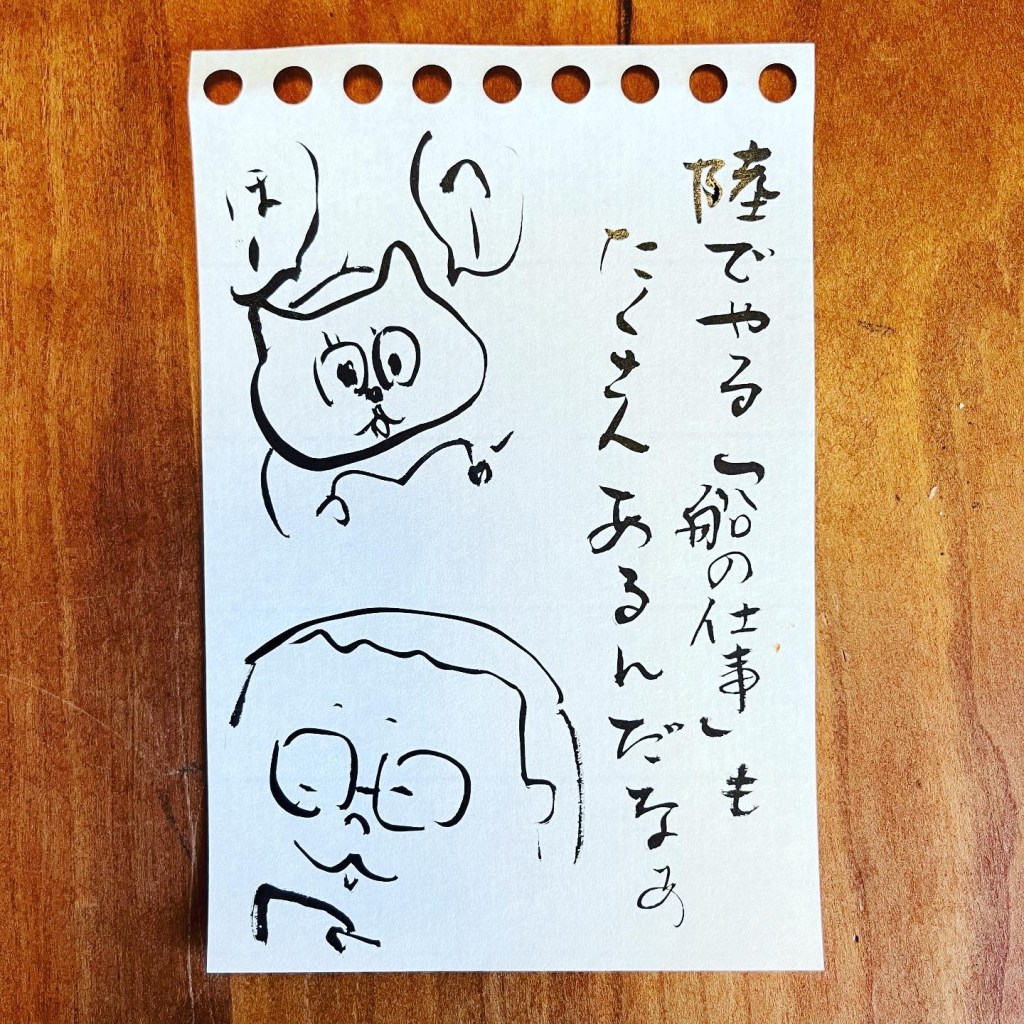 陸でやる「船の仕事」も
たくさんあるんだなぁ
へー
ほー